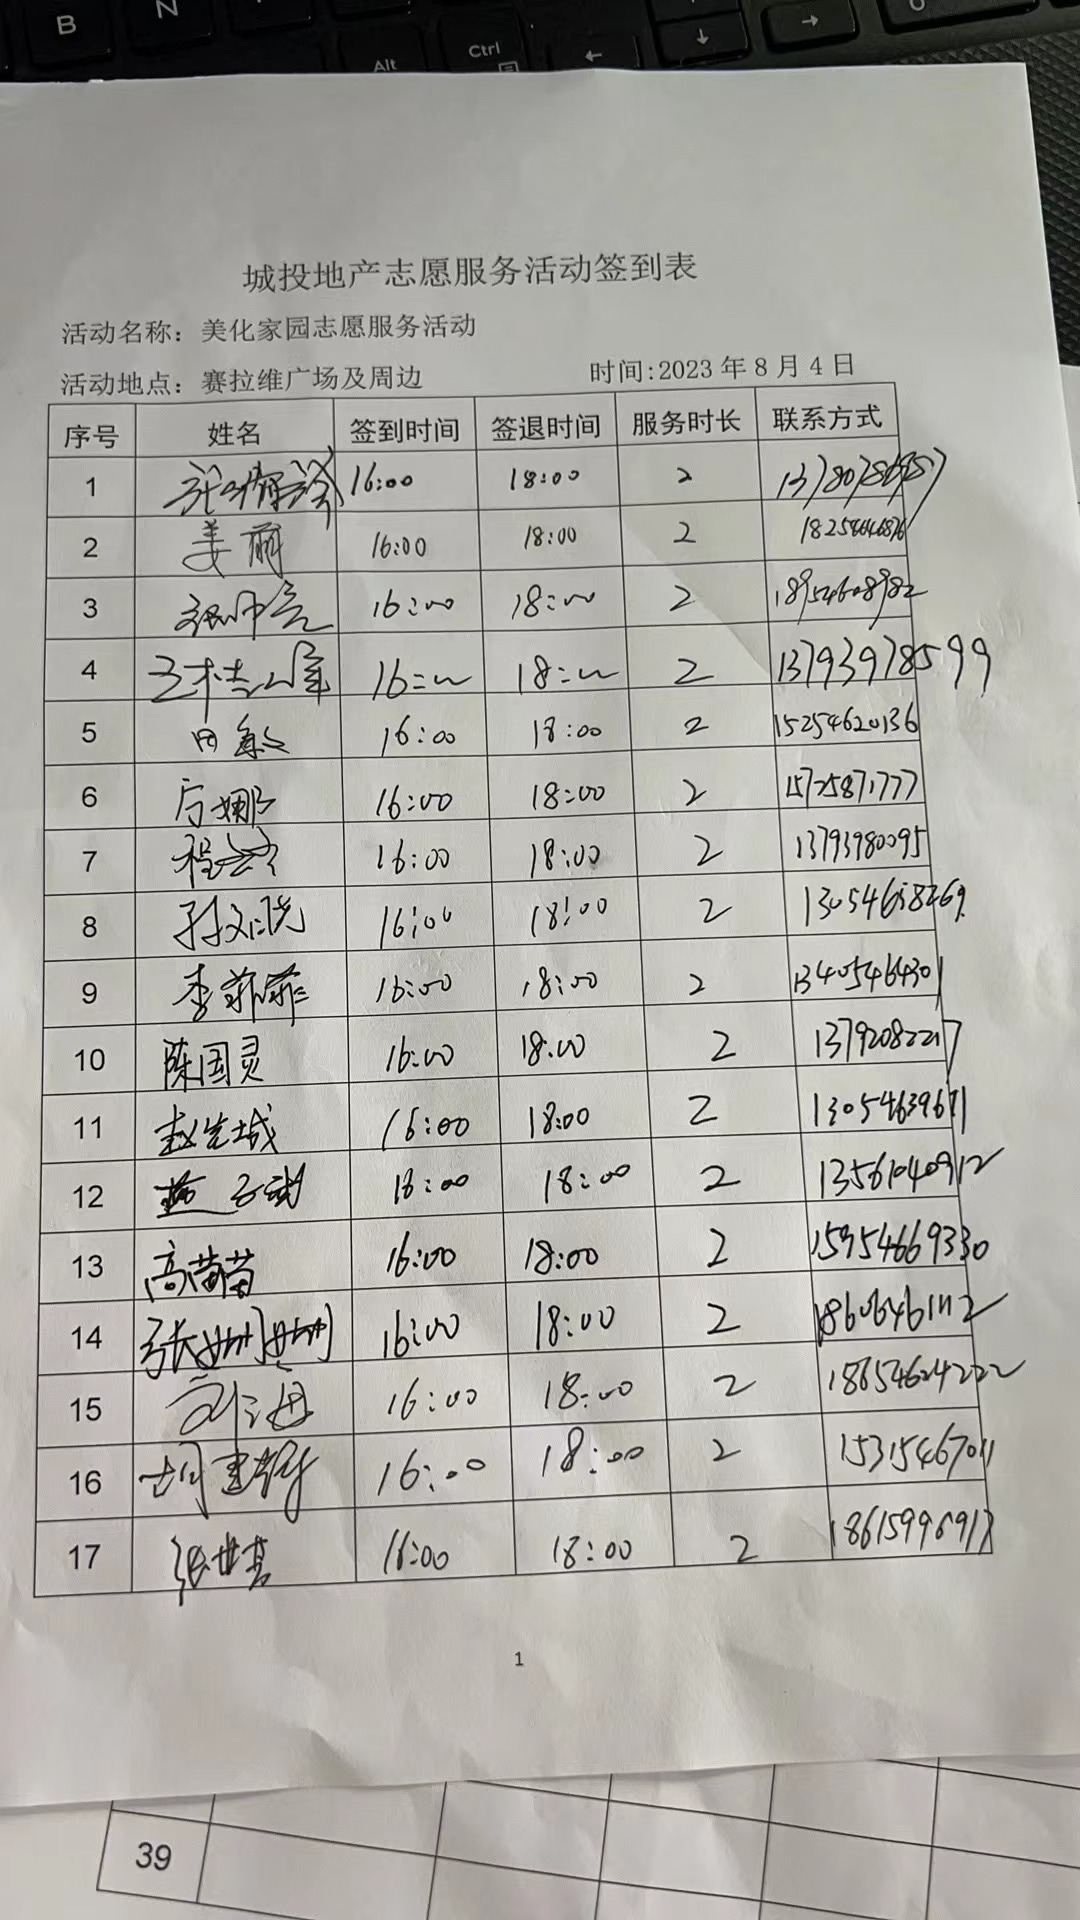 B N Alt Ctrl ← ↓ → 0
城投地产志愿服务活动签到表
活动名称：美化家园志愿服务活动
活动地点：赛拉维广场及周边 时间:2023年8月4日
序号 姓名 签到时间 签退时间 服务时长 联系方式
1 16:00 18:00 2
2 姜丽 16:00 18:00 2
3 16:00 18:00 2 18954608982
4 16:00 18:00 2 13793978599
5 田敏 16:00 18:00 2 15254620136
6 房娜 16:00 18:00 2 15725871777
7 16:00 18:00 2 13793980095
8 16:00 18:00 2
9 李菲菲 16:00 18:00 2 13405464301
10 陈国灵 16:00 18:00 2 13792082217
11 赵先城 16:00 18:00 2 13054639671
12 18:00 18:00 2 13561040912
13 高苗苗 16:00 18:00 2 15954669330
14 张姗姗 16:00 18:00 2 18606461112
15 16:00 18:00 2 18654624222
16 16:00 18:00 2 15315467011
17 16:00 18:00 2
1
39